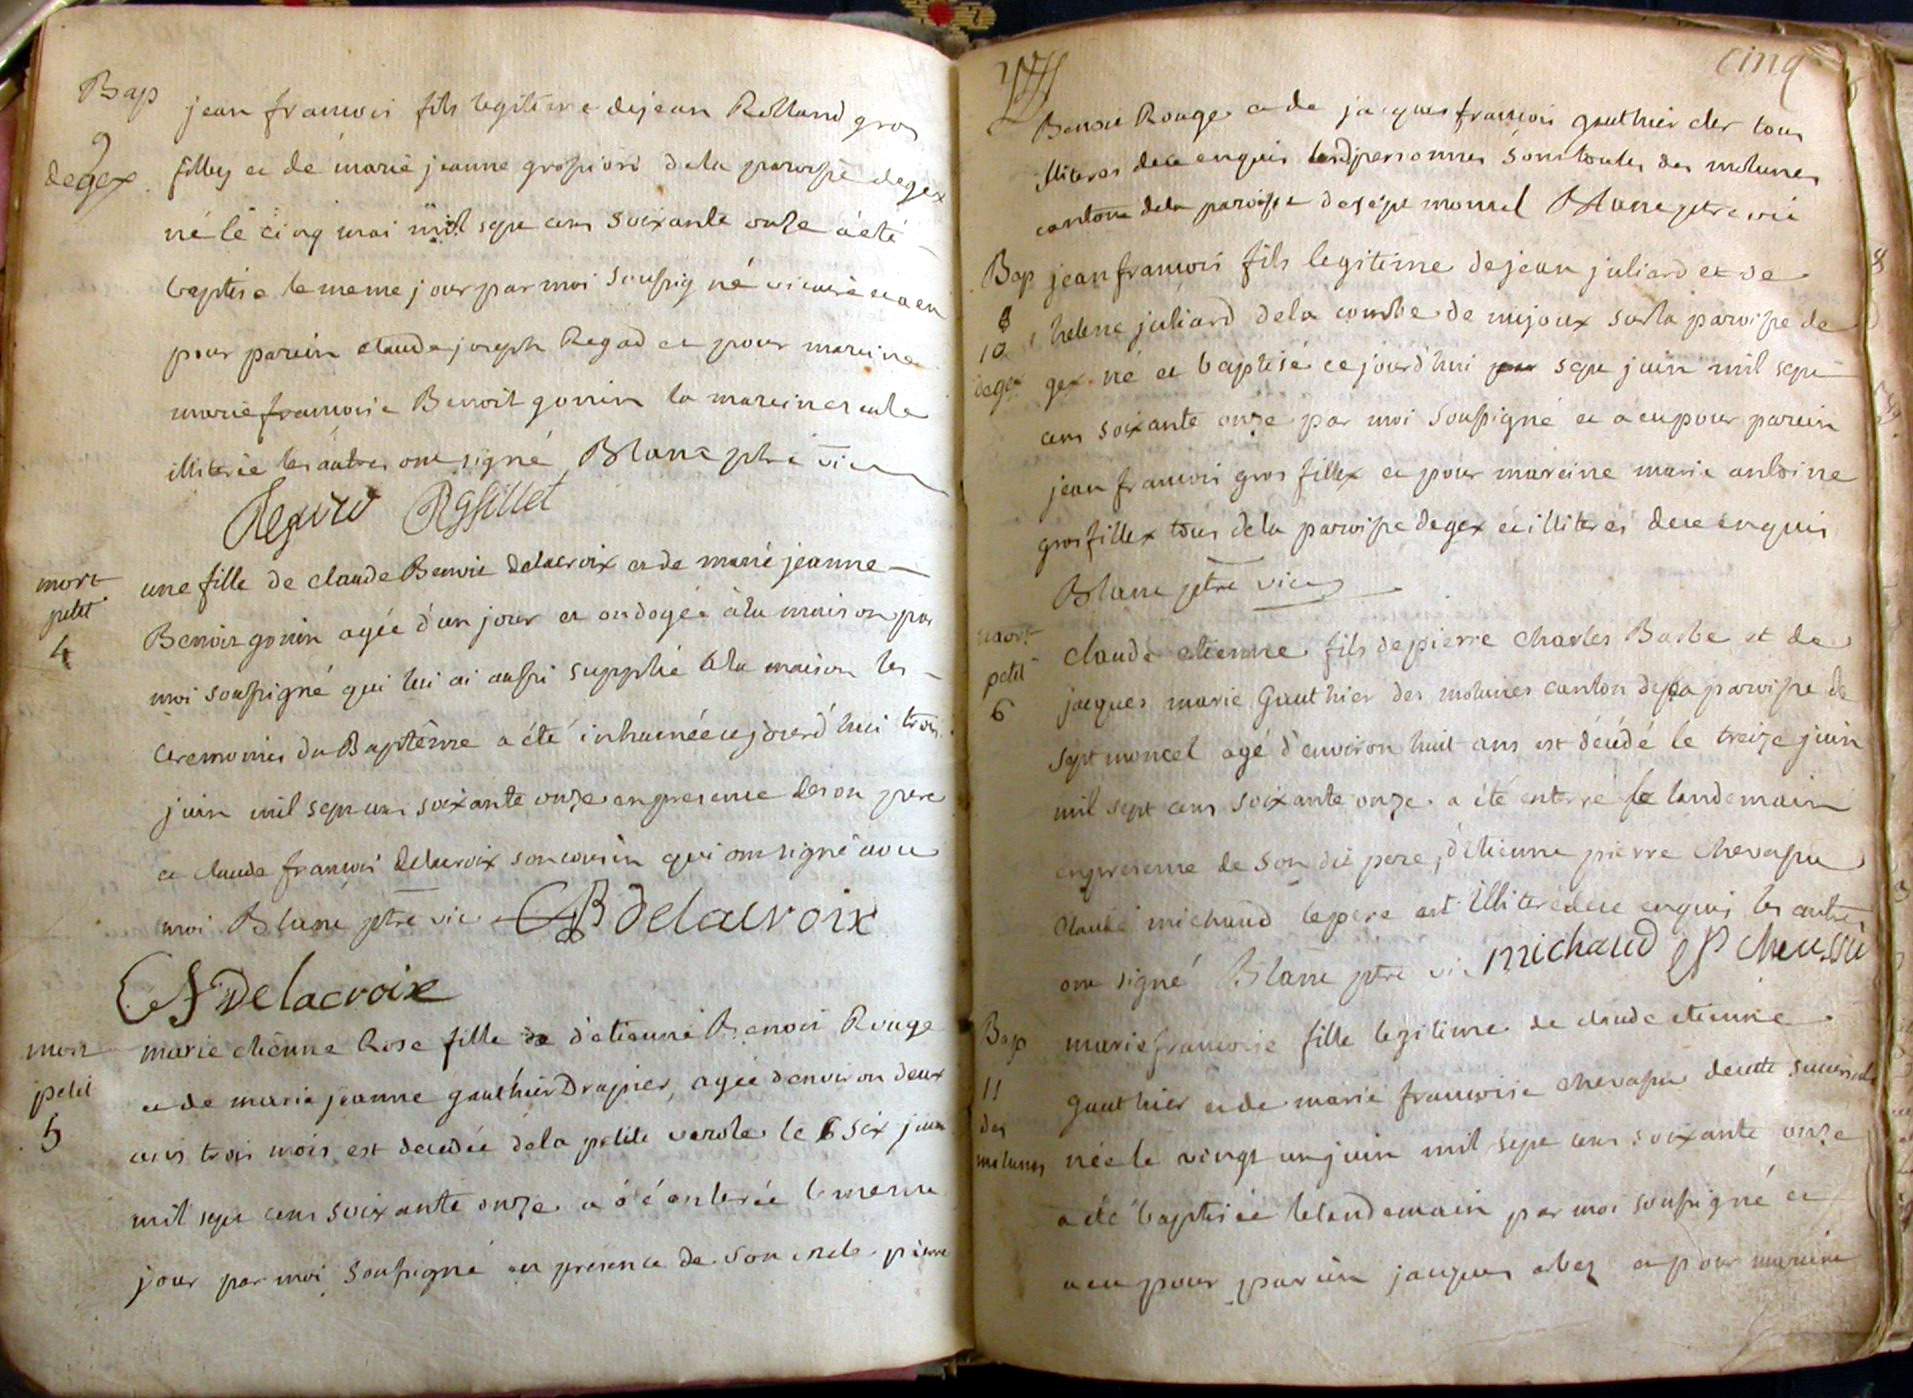 Bap
9
degex
jean francois fils legitime dejean Rolland gros
filley et de marie jeanne grospiori dela paroisse degex
né le cinq mai mil sept cens soixante onze a été
baptise le meme jour par moi soussigné vicaire et a eu
pour parein claude joseph Regad et pour mareine
marie francoise Benoit gonin la mareine seule
illiterée les autres ont signé Blanc ptre vic
Regard
mort
petit
4
une fille de claude Benoit delacroix et de marie jeanne
Benoit gonin agée d'un jour et ondoyée à la maison par
moi soussigné qui lui ai aussi supplié à la maison les
ceremonies du Baptême a été inhumée cejourd'hui trois
juin mil sept cens soixante onze en presence de son pere
et claude francois delacroix son cousin qui ont signé avec
moi Blanc ptre vic CB delacroix
CF Delacroix
mort
petit
5
marie etienne Rose fille de d'etienne Benoit Rouge
et de marie jeanne gauthier Drapier, agée denviron deux
ans trois mois est decedée dela petite verole le 6 six juin
mil sept cens soixante onze a été enterée le meme
jour par moi soussigné en presence de son oncle pierre
cinq
Benoit Rouge et de jacques francois gauthier cler tous
illiteres de ce enquis lesd personnes sont toutes des molunes
canton dela paroisse de sept moncel Blanc ptre vic
Bap
10
degex
jean francois fils legitime de jean juliard et de
helene juliard dela combe de mijoux sur la paroisse de
gex né et baptisé cejourd'hui sept juin mil sept
cens soixante onze par moi soussigné et a eu pour parein
jean francois gros fillex et pour mareine marie antoine
grosfillex tous dela paroisse degex et illiterés de ce enquis
Blanc ptre vic
mort
petit
6
claude etienne fils de pierre charles Barbe et de
jacques marie Gauthier des molunes canton de la paroisse de
sept moncel agé d'environ huit ans est décédé le treize juin
mil sept cens soixante onze a été enterré le landemain
en presence de son dit pere, d'etienne pierre chevassu
claude michaud le pere est illiteré de ce enquis les autres
ont signé Blanc ptre vic michaud EP chevassu
Bap
11
des
molunes
marie francoise fille legitime de claude etienne
Gauthier et de marie francoise chevassu de cette succursale
née le vingt un juin mil sept cens soixante onze
a été baptisée le landemain par moi soussigné et
a eu pour parein jacques abez et pour mareine